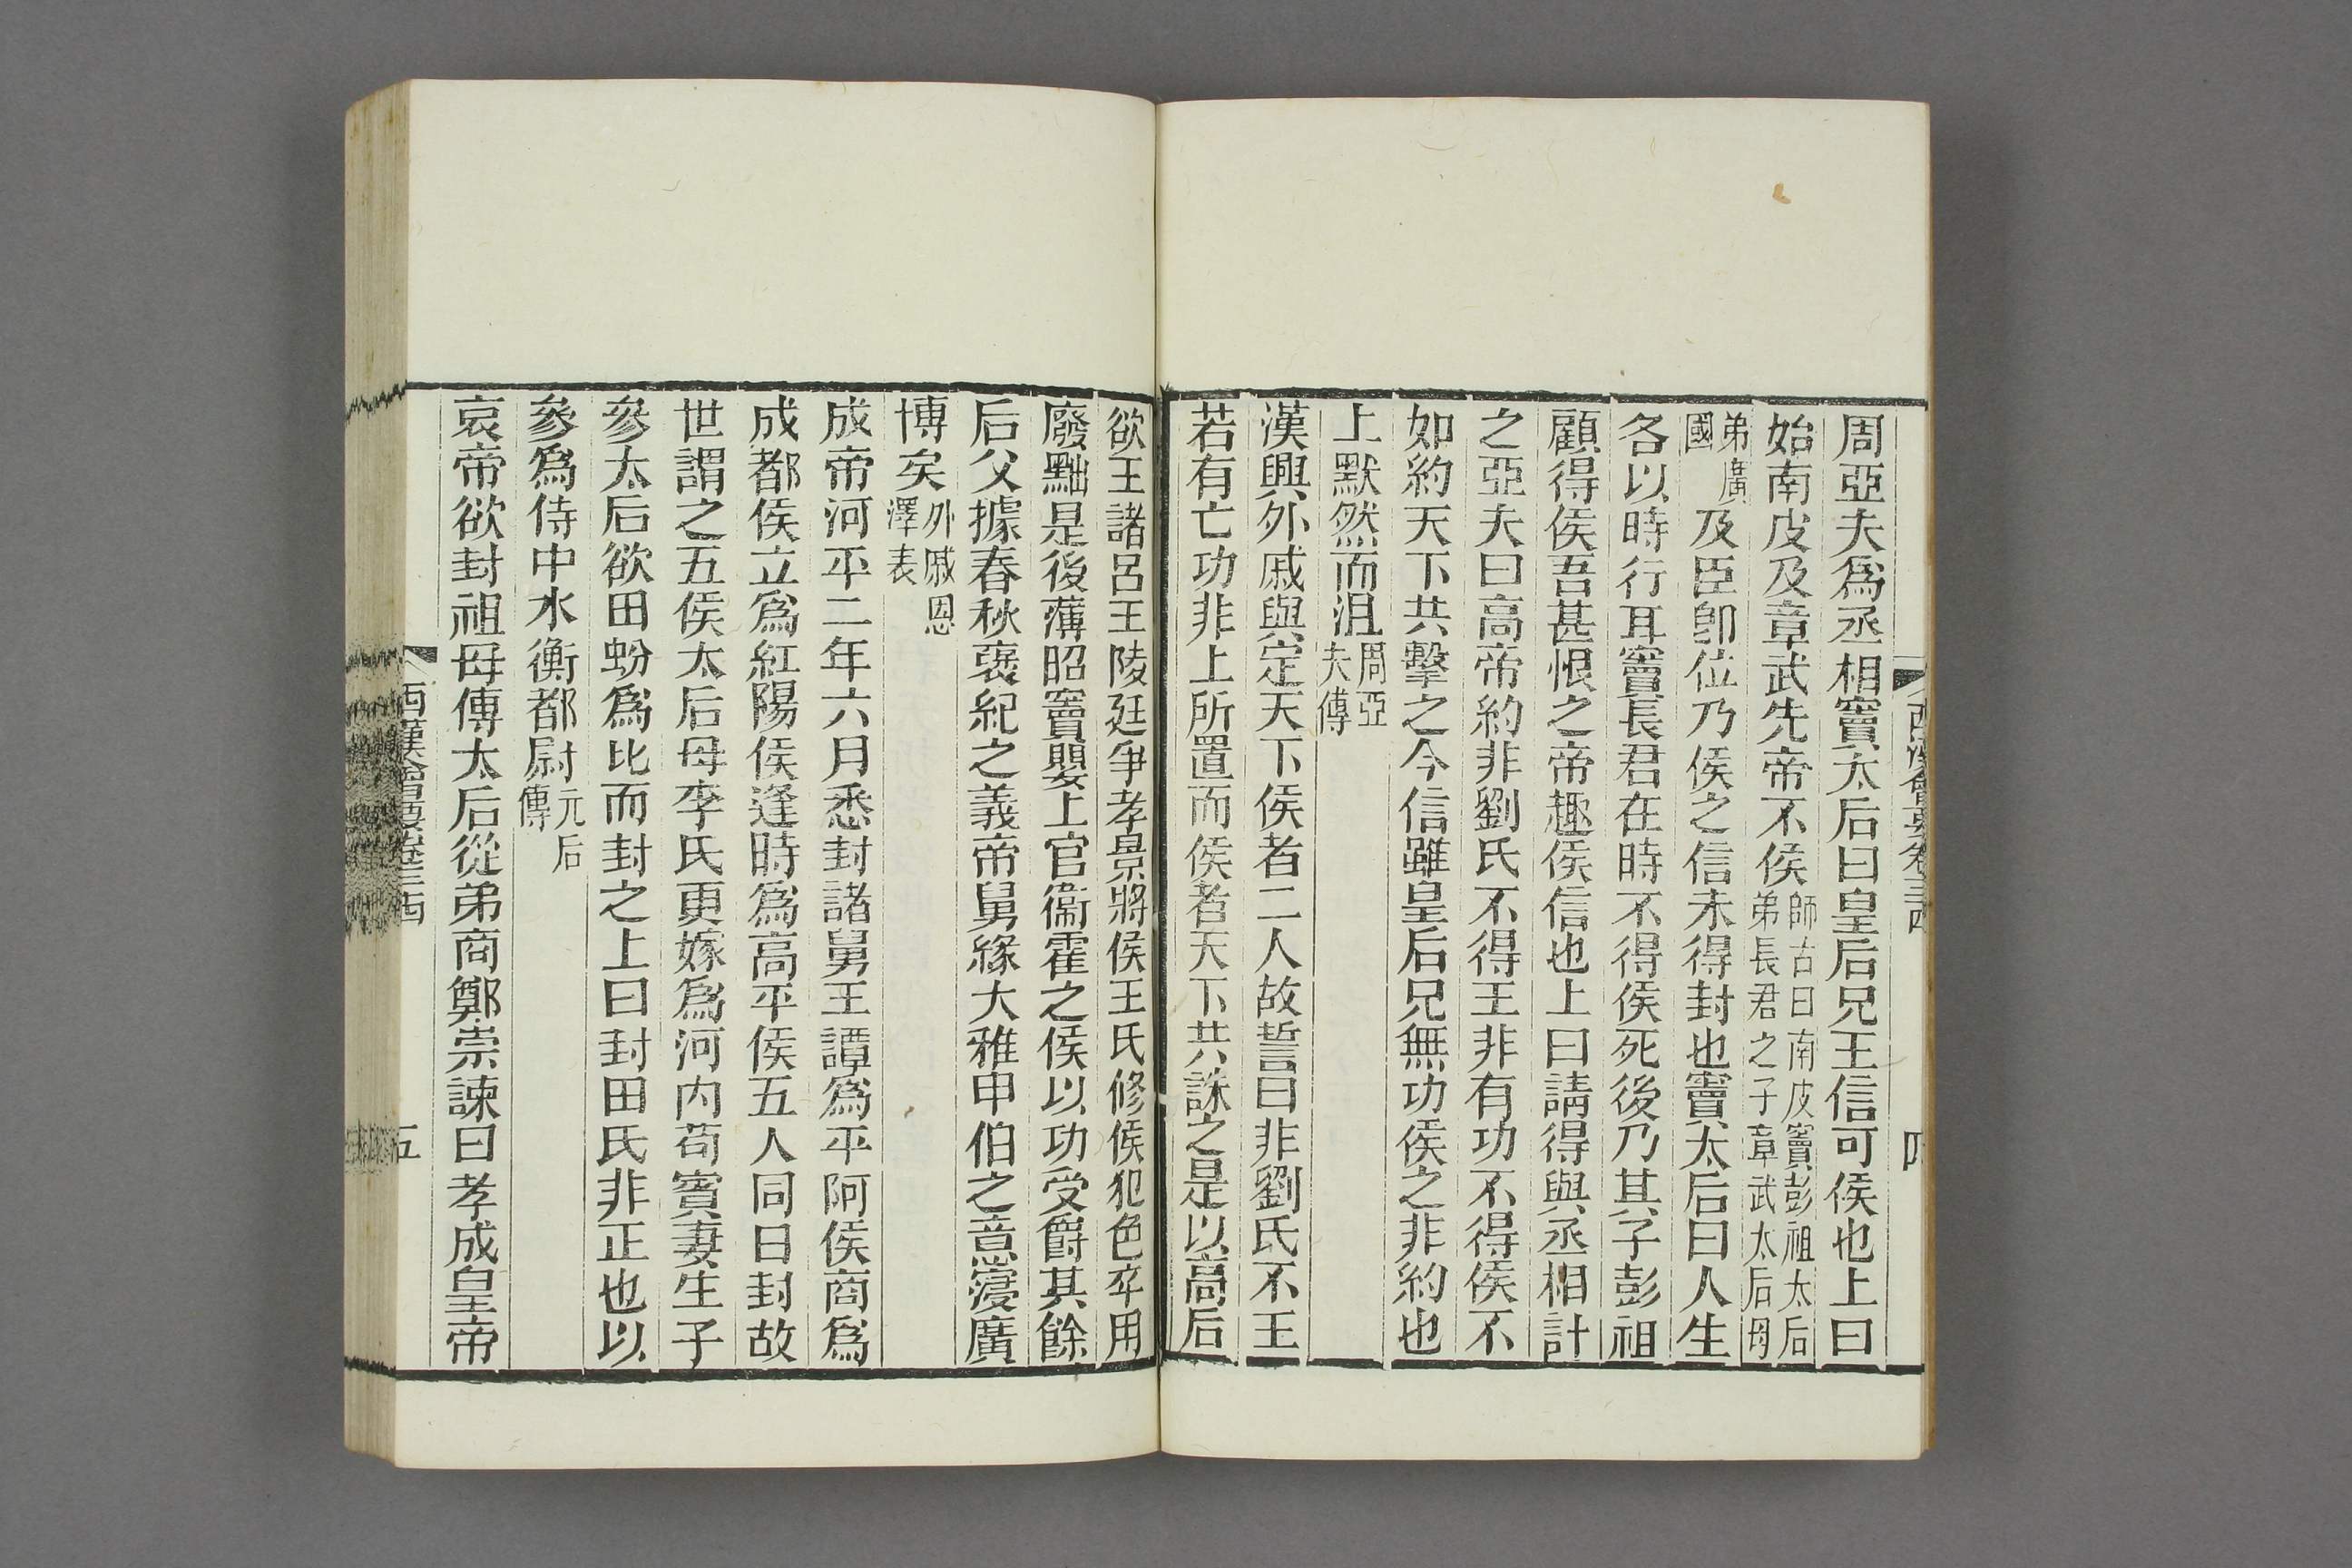 西漢會要卷三四
四
周亞夫爲丞相竇太后曰皇后兄王信可侯也上曰
始南皮及章武先帝不侯師古曰南皮竇彭祖太后弟長君之子章武太后母
弟廣國及臣卽位乃侯之信未得封也竇太后曰人生
各以時行耳竇長君在時不得侯死後乃其子彭祖
顧得侯吾甚恨之帝趣侯信也上曰請得與丞相計
之亞夫曰高帝約非劉氏不得王非有功不得侯不
如約天下共擊之今信雖皇后兄無功侯之非約也
上默然而沮周亞夫傳
漢興外戚與定天下侯者二人故誓曰非劉氏不王
若有亡功非上所置而侯者天下共誅之是以高后
欲王諸呂王陵廷爭孝景將侯王氏修侯犯色卒用
廢黜是後薄昭竇嬰上官衞霍之侯以功受爵其餘
后父據春秋襃紀之義帝舅緣大雅申伯之意寖廣
博矣外戚恩澤表
成帝河平二年六月悉封諸舅王譚爲平阿侯商爲
成都侯立爲紅陽侯逢時爲高平侯五人同日封故
世謂之五侯太后母李氏更嫁爲河內苟賓妻生子
參太后欲田蚡爲比而封之上曰封田氏非正也以
參爲侍中水衡都尉元后傳
哀帝欲封祖母傅太后從弟商鄭崇諫曰孝成皇帝
西漢會要卷三四
五